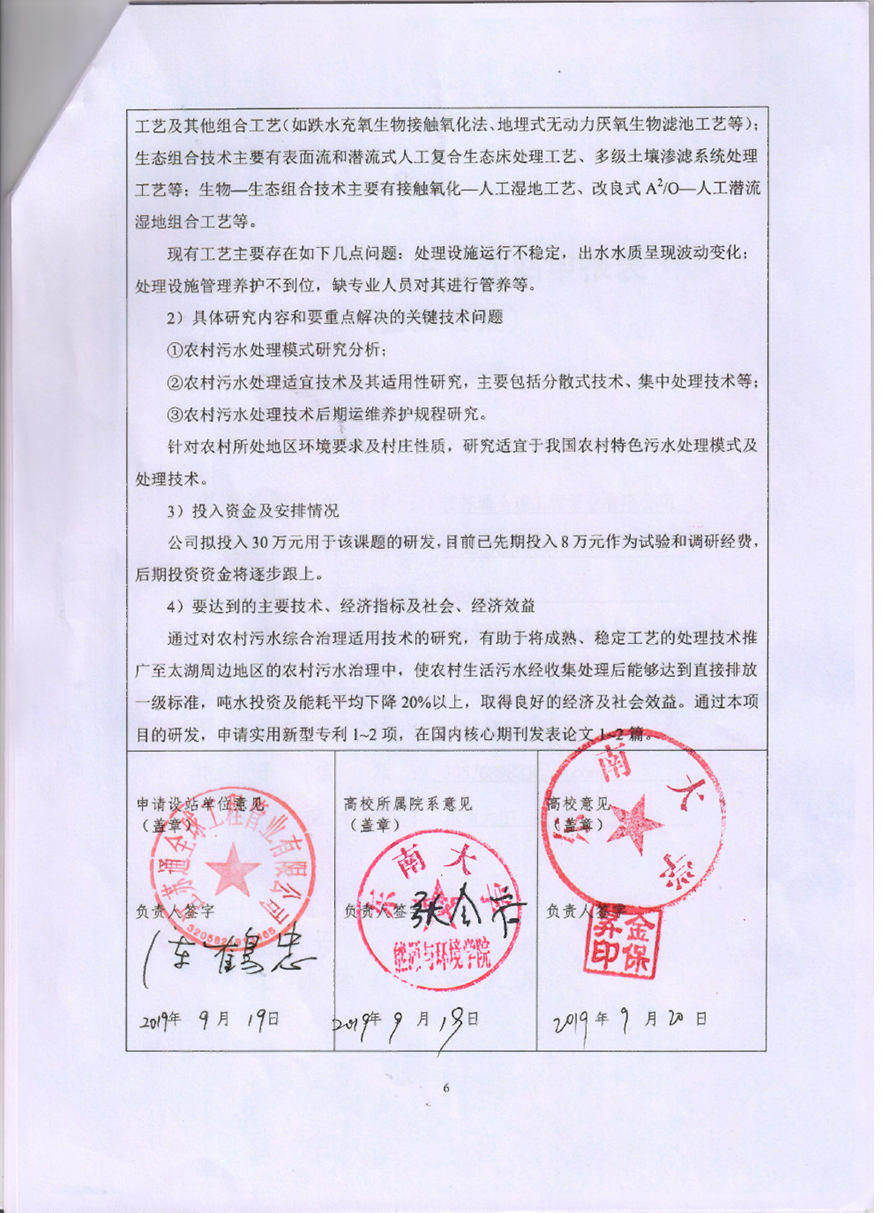 工艺及其他组合工艺(如跌水充氧生物接触氧化法、地埋式无动力厌氧生物滤池工艺等);
生态组合技术主要有表面流和潜流式人工复合生态床处理工艺、多级土壤渗滤系统处理
工艺等；生物—生态组合技术主要有接触氧化—人工湿地工艺、改良式 A²/O—人工潜流
湿地组合工艺等。
现有工艺主要存在如下几点问题：处理设施运行不稳定，出水水质呈现波动变化；
处理设施管理养护不到位，缺专业人员对其进行管养等。
2）具体研究内容和要重点解决的关键技术问题
①农村污水处理模式研究分析；
②农村污水处理适宜技术及其适用性研究，主要包括分散式技术、集中处理技术等；
③农村污水处理技术后期运维养护规程研究。
针对农村所处地区环境要求及村庄性质，研究适宜于我国农村特色污水处理模式及
处理技术。
3）投入资金及安排情况
公司拟投入 30 万元用于该课题的研发，目前已先期投入 8 万元作为试验和调研经费，
后期投资资金将逐步跟上。
4）要达到的主要技术、经济指标及社会、经济效益
通过对农村污水综合治理适用技术的研究，有助于将成熟、稳定工艺的处理技术推
广至太湖周边地区的农村污水治理中，使农村生活污水经收集处理后能够达到直接排放
一级标准，吨水投资及能耗平均下降 20%以上，取得良好的经济及社会效益。通过本项
目的研发，申请实用新型专利 1~2 项，在国内核心期刊发表论文 1~2 篇。
申请设站单位意见
（盖章）
负责人签字
2019年 9 月 19日
高校所属院系意见
（盖章）
东南大学
能源与环境学院
负责人签字
2019年 9 月 19日
高校意见
（盖章）
东南大学
负责人签字
金保昇印
2019 年 9 月 20 日
6